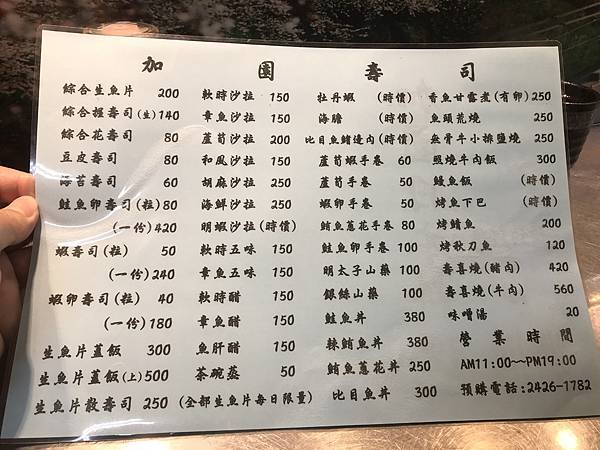 加園壽司
綜合生魚片 200
綜合握壽司(生)140
綜合花壽司 80
豆皮壽司 80
海苔壽司 60
鮭魚卵壽司(粒)80
(一份)420
蝦壽司(粒) 50
(一份)240
蝦卵壽司(粒) 40
(一份)180
生魚片蓋飯 300
生魚片蓋飯(上)500
生魚片散壽司 250
軟時沙拉 150
章魚沙拉 150
蘆筍沙拉 200
和風沙拉 150
胡麻沙拉 250
海鮮沙拉 250
明蝦沙拉(時價)
軟時五味 150
章魚五味 150
軟時醋 150
章魚醋 150
魚肝醋 150
茶碗蒸 50
(全部生魚片每日限量)
牡丹蝦 (時價)
海膽 (時價)
比目魚鰭邊肉(時價)
蘆筍蝦手卷 60
蘆筍手卷 50
蝦卵手卷 50
鮪魚蔥花手卷 80
鮭魚卵手卷 100
明太子山藥 100
銀絲山藥 100
鮭魚丼 380
辣鮪魚丼 380
鮪魚蔥花丼 250
比目魚丼 300
香魚甘露煮(有卵)250
魚頭花燒 250
無骨牛小排鹽燒 250
照燒牛肉飯 300
鰻魚飯 (時價)
烤魚下巴 (時價)
烤鯖魚 200
烤秋刀魚 120
壽喜燒(豬肉) 420
壽喜燒(牛肉) 560
味噌湯 20
營業時間
AM11:00~~PM19:00
預購電話:2426-1782